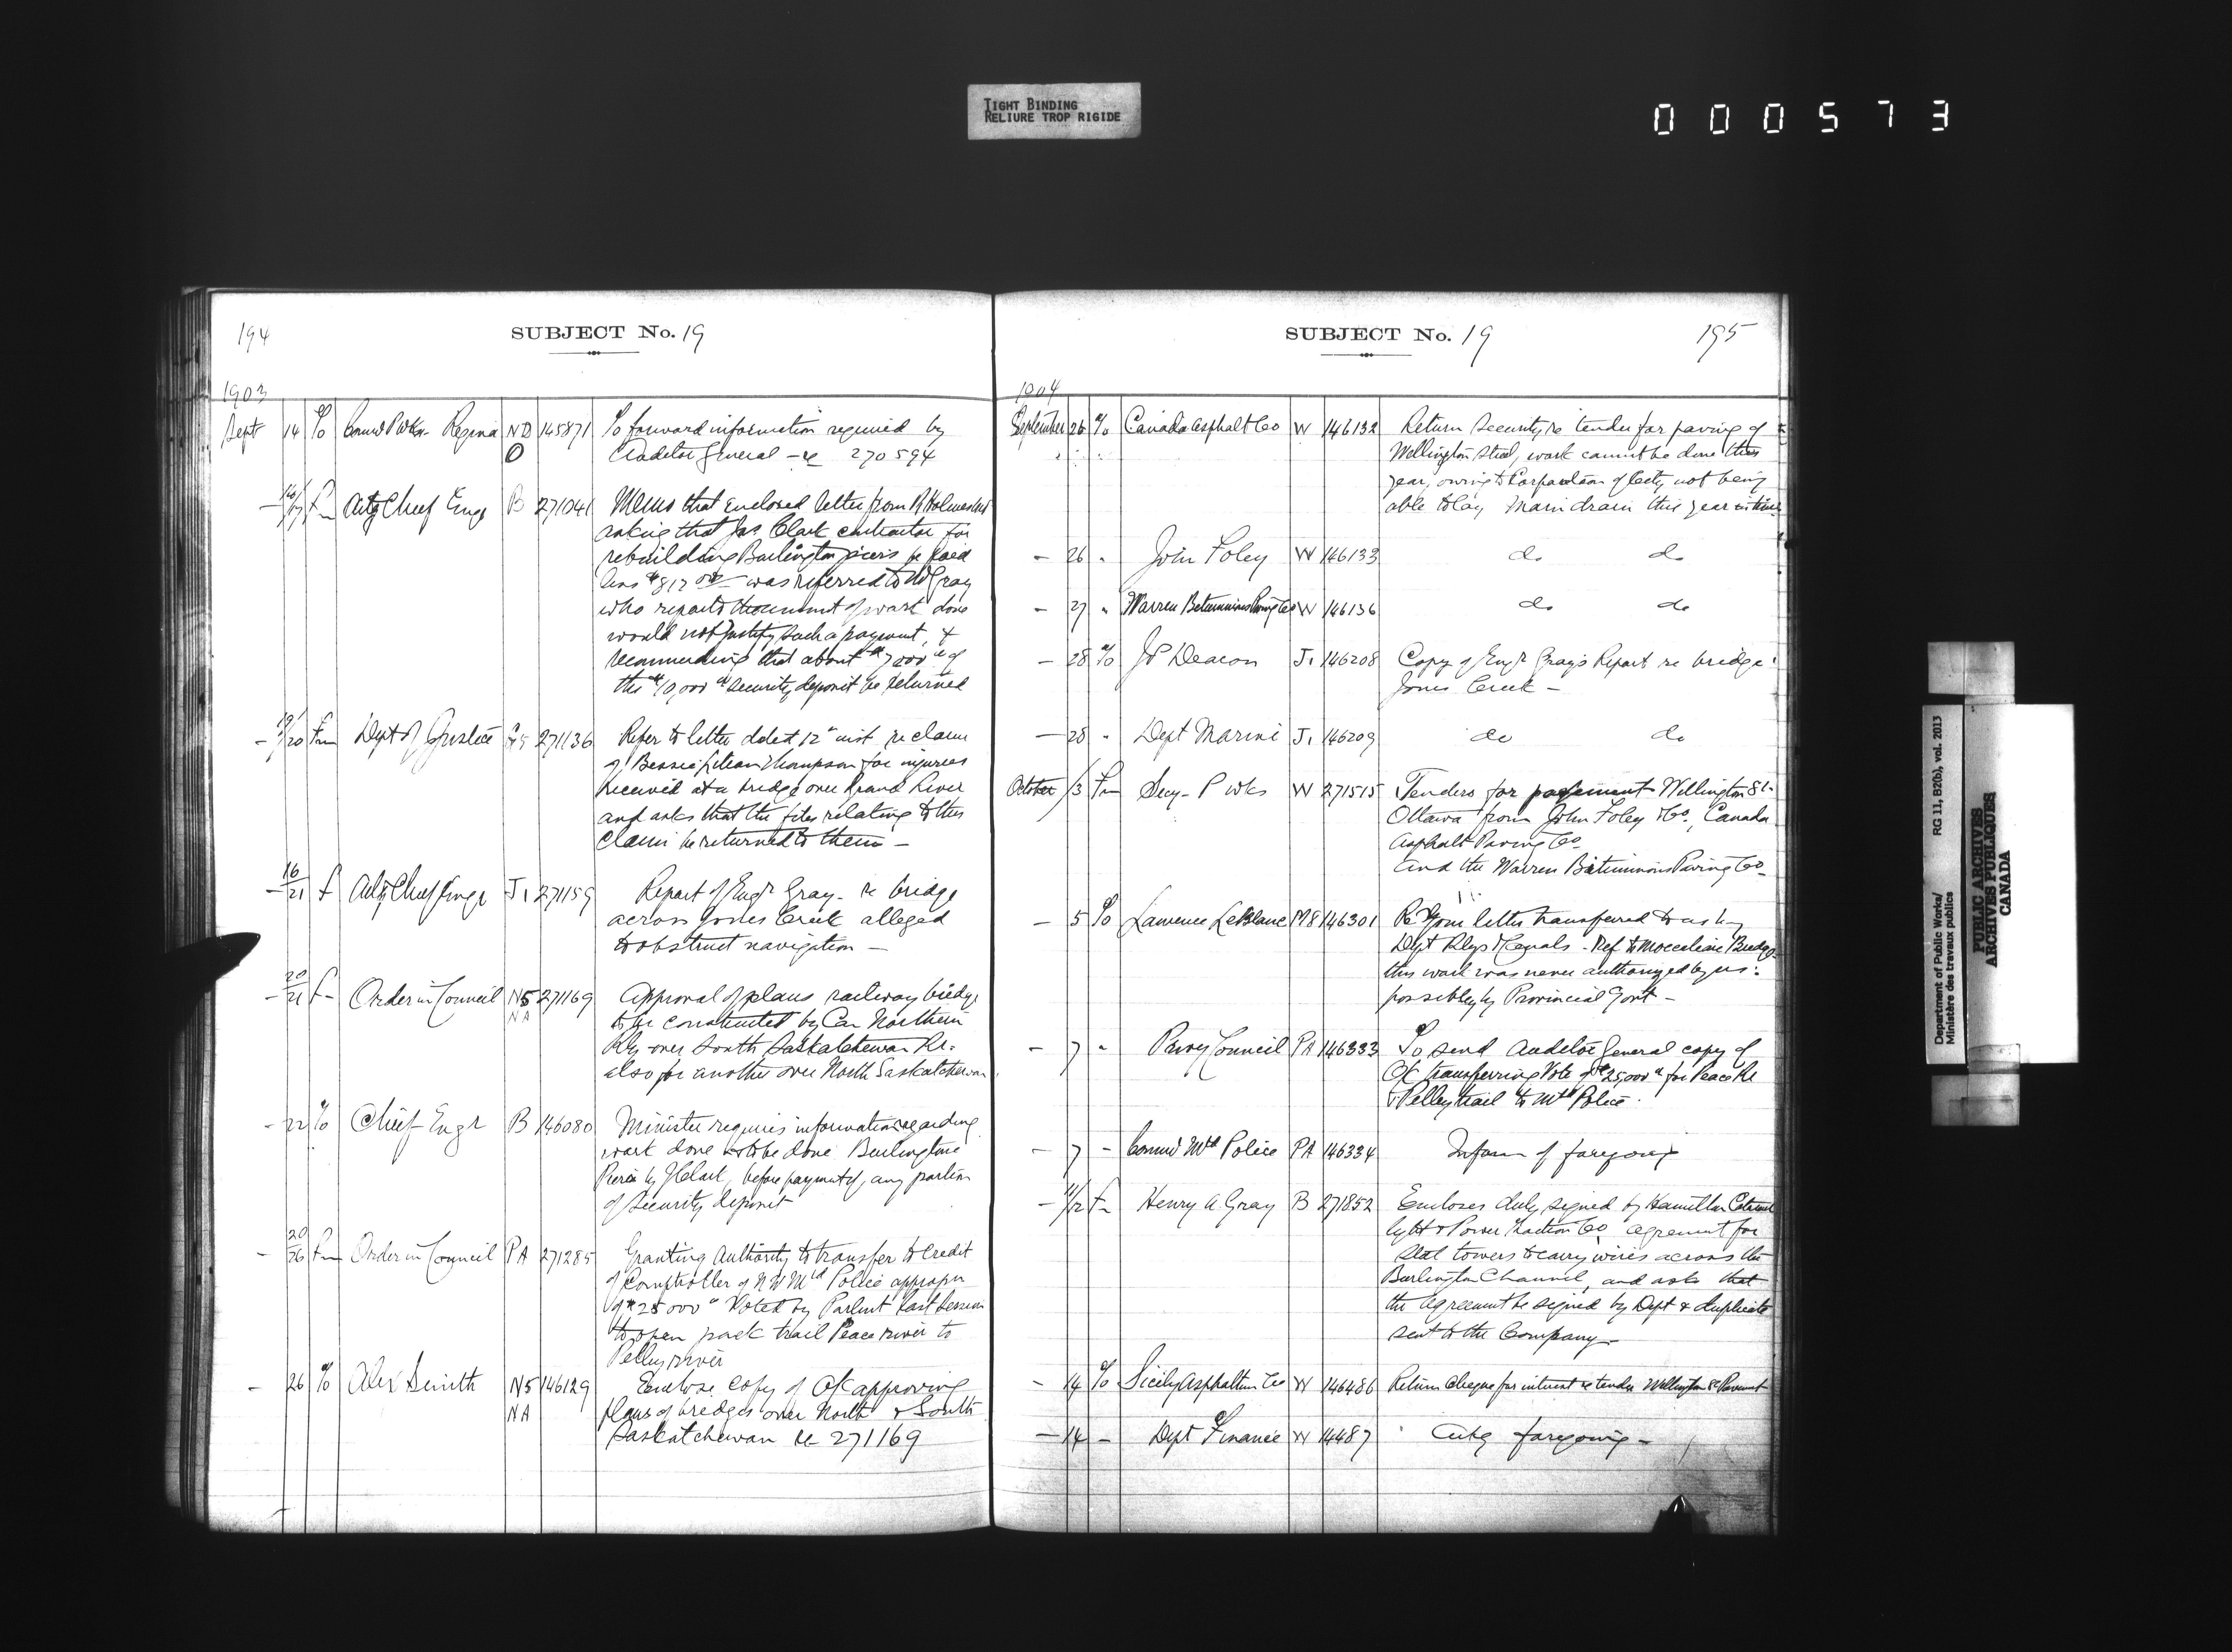 TIGHT BINDING
RELIURE TROP RIGIDE
000573
194
SUBJECT No. 19
1903
Sept 14 To Comr P Wks Regina N D O 145871 To forward information required by
Auditor General - re 270594
16/17 f Actg Chief Engr B 271041 Memo that enclosed letter from R Holmes
asking that Jas Clark contractor for
rebuilding Burlington piers be paid
was referred to
who reports amount of work done
would not justify such a payment, &
recommending that about $7000 of
the $10,000 security deposit be returned
/20 Fm Dept of Justice 271136 Refer to letter dated 12" inst re claim
of Bessie Thompson for injuries
received at a bridge over Grand River
and asks that the files relating to this
claim be returned to them -
16/21 f Actg Chief Engr J1 271159 Report of Engr Gray - re bridge
across Jones Creek alleged
to obstruct navigation -
20/21 f Order in Council N5 NA 271169 Approval of plans railway bridge
to be constructed by Can Northern
Rly over South Saskatchewan Rr.
also for another over North Saskatchewan
- 22 To Chief Engr B 146080 Minister requires information regarding
work done & to be done Burlington
Piers by J Clark, before payment of any portion
of security deposit
20/26 Fm Order in Council PA 271285 Granting authority to transfer to credit
of Comptroller of N W Mtd Police appropn
of $25000 voted by Parlmt last session
to open pack trail Peace river to
Pelly river
- 26 To Alex Smith N5 NA 146129 Enclose copy of OC approving
plans of bridges over North & South
Saskatchewan re 271169
SUBJECT No. 19
195
1904
September 26 To Canada Asphalt Co W 146132 Return security re tender for paving of
Wellington Street, work cannot be done this
year, owing to Corporation of City not being
able to lay main drain this year in time
- 26 " John Foley W 146133 do do
- 27 " Warren Bituminous Paving Co W 146136 do do
- 28 To J P Deacon J1 146208 Copy of Engr Gray's Report re bridge
Jones Creek -
- 28 " Dept Marine J1 146209 do do
October /3 Fm Secy - P wks W 271515 Tenders for pavement Wellington St
Ottawa from John Foley & Co, Canada
Asphalt Paving Co
and the Warren Bituminous Paving Co -
- 5 To Lawrence LeBlanc M8 146301 Re your letter transferred to us by
Dept Rlys & Canals - Ref to Bridge
this work was never authorized by us:
possibly by Provincial Govt -
- 7 " Privy Council PA 146333 To send Auditor General copy of
OC transferring Vote of $25,000 for Peace Rr
& Pelly trail to Mtd Police.
- 7 - Comr Mtd Police PA 146334 Inform of foregoing
- 11/12 f Henry A. Gray B 271852 Encloses duly signed by Hamilton Cataract
light & Power Traction Co agreement for
steel towers to carry wires across the
Burlington Channel, and asks that
the agreement be signed by Dept & duplicate
sent to the Company -
- 14 To Sicily Asphaltum Co W 146486 Return cheque for interest re tender Wellington St Pavement
- 14 - Dept Finance W 14487 foregoing -
Department of Public Works/
Ministère des travaux publics
RG 11, B2(b), vol. 2013
PUBLIC ARCHIVES
ARCHIVES PUBLIQUES
CANADA